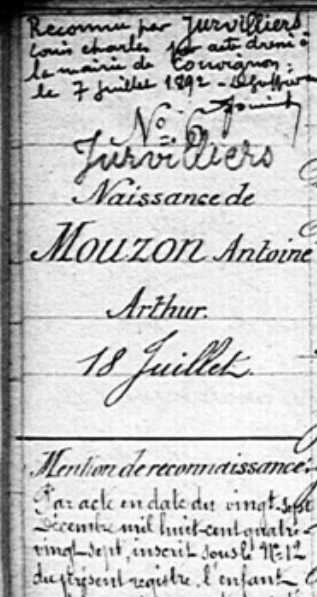 Reconnu par Jurvilliers
Louis charles par acte dressé à
la mairie de Couvignon
le 7 juillet 1892 - Le Greffier
Nº 6
Jurvilliers
Naissance de
Mouzon Antoine
Arthur.
18 Juillet.
Mention de reconnaissance:
Par acte en date du vingt-sept
Décembre mil huit-cent quatre-
vingt-sept, inscrit sous le Nº 12
du présent registre, l'enfant